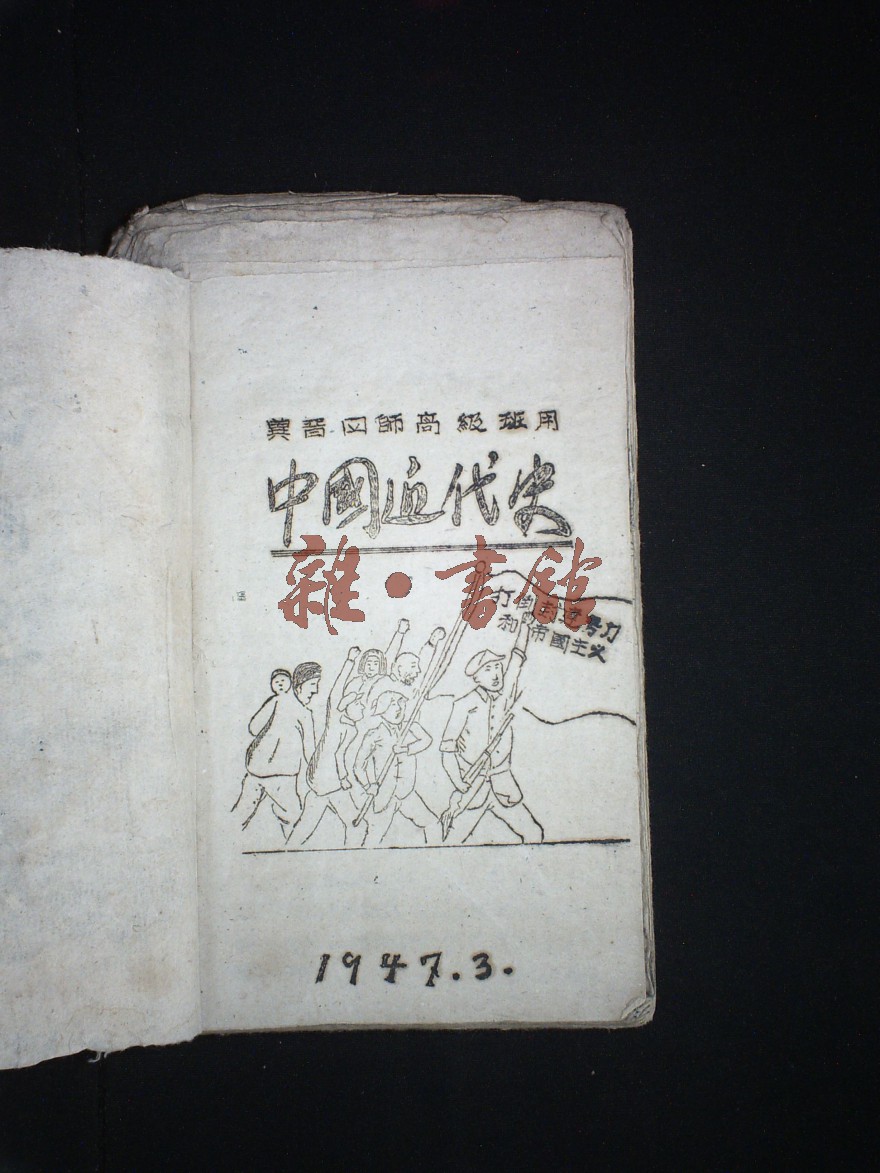 冀晋四師高級班用
中國近代史
雜·書館
打倒封建势力
和帝國主义
1947.3.